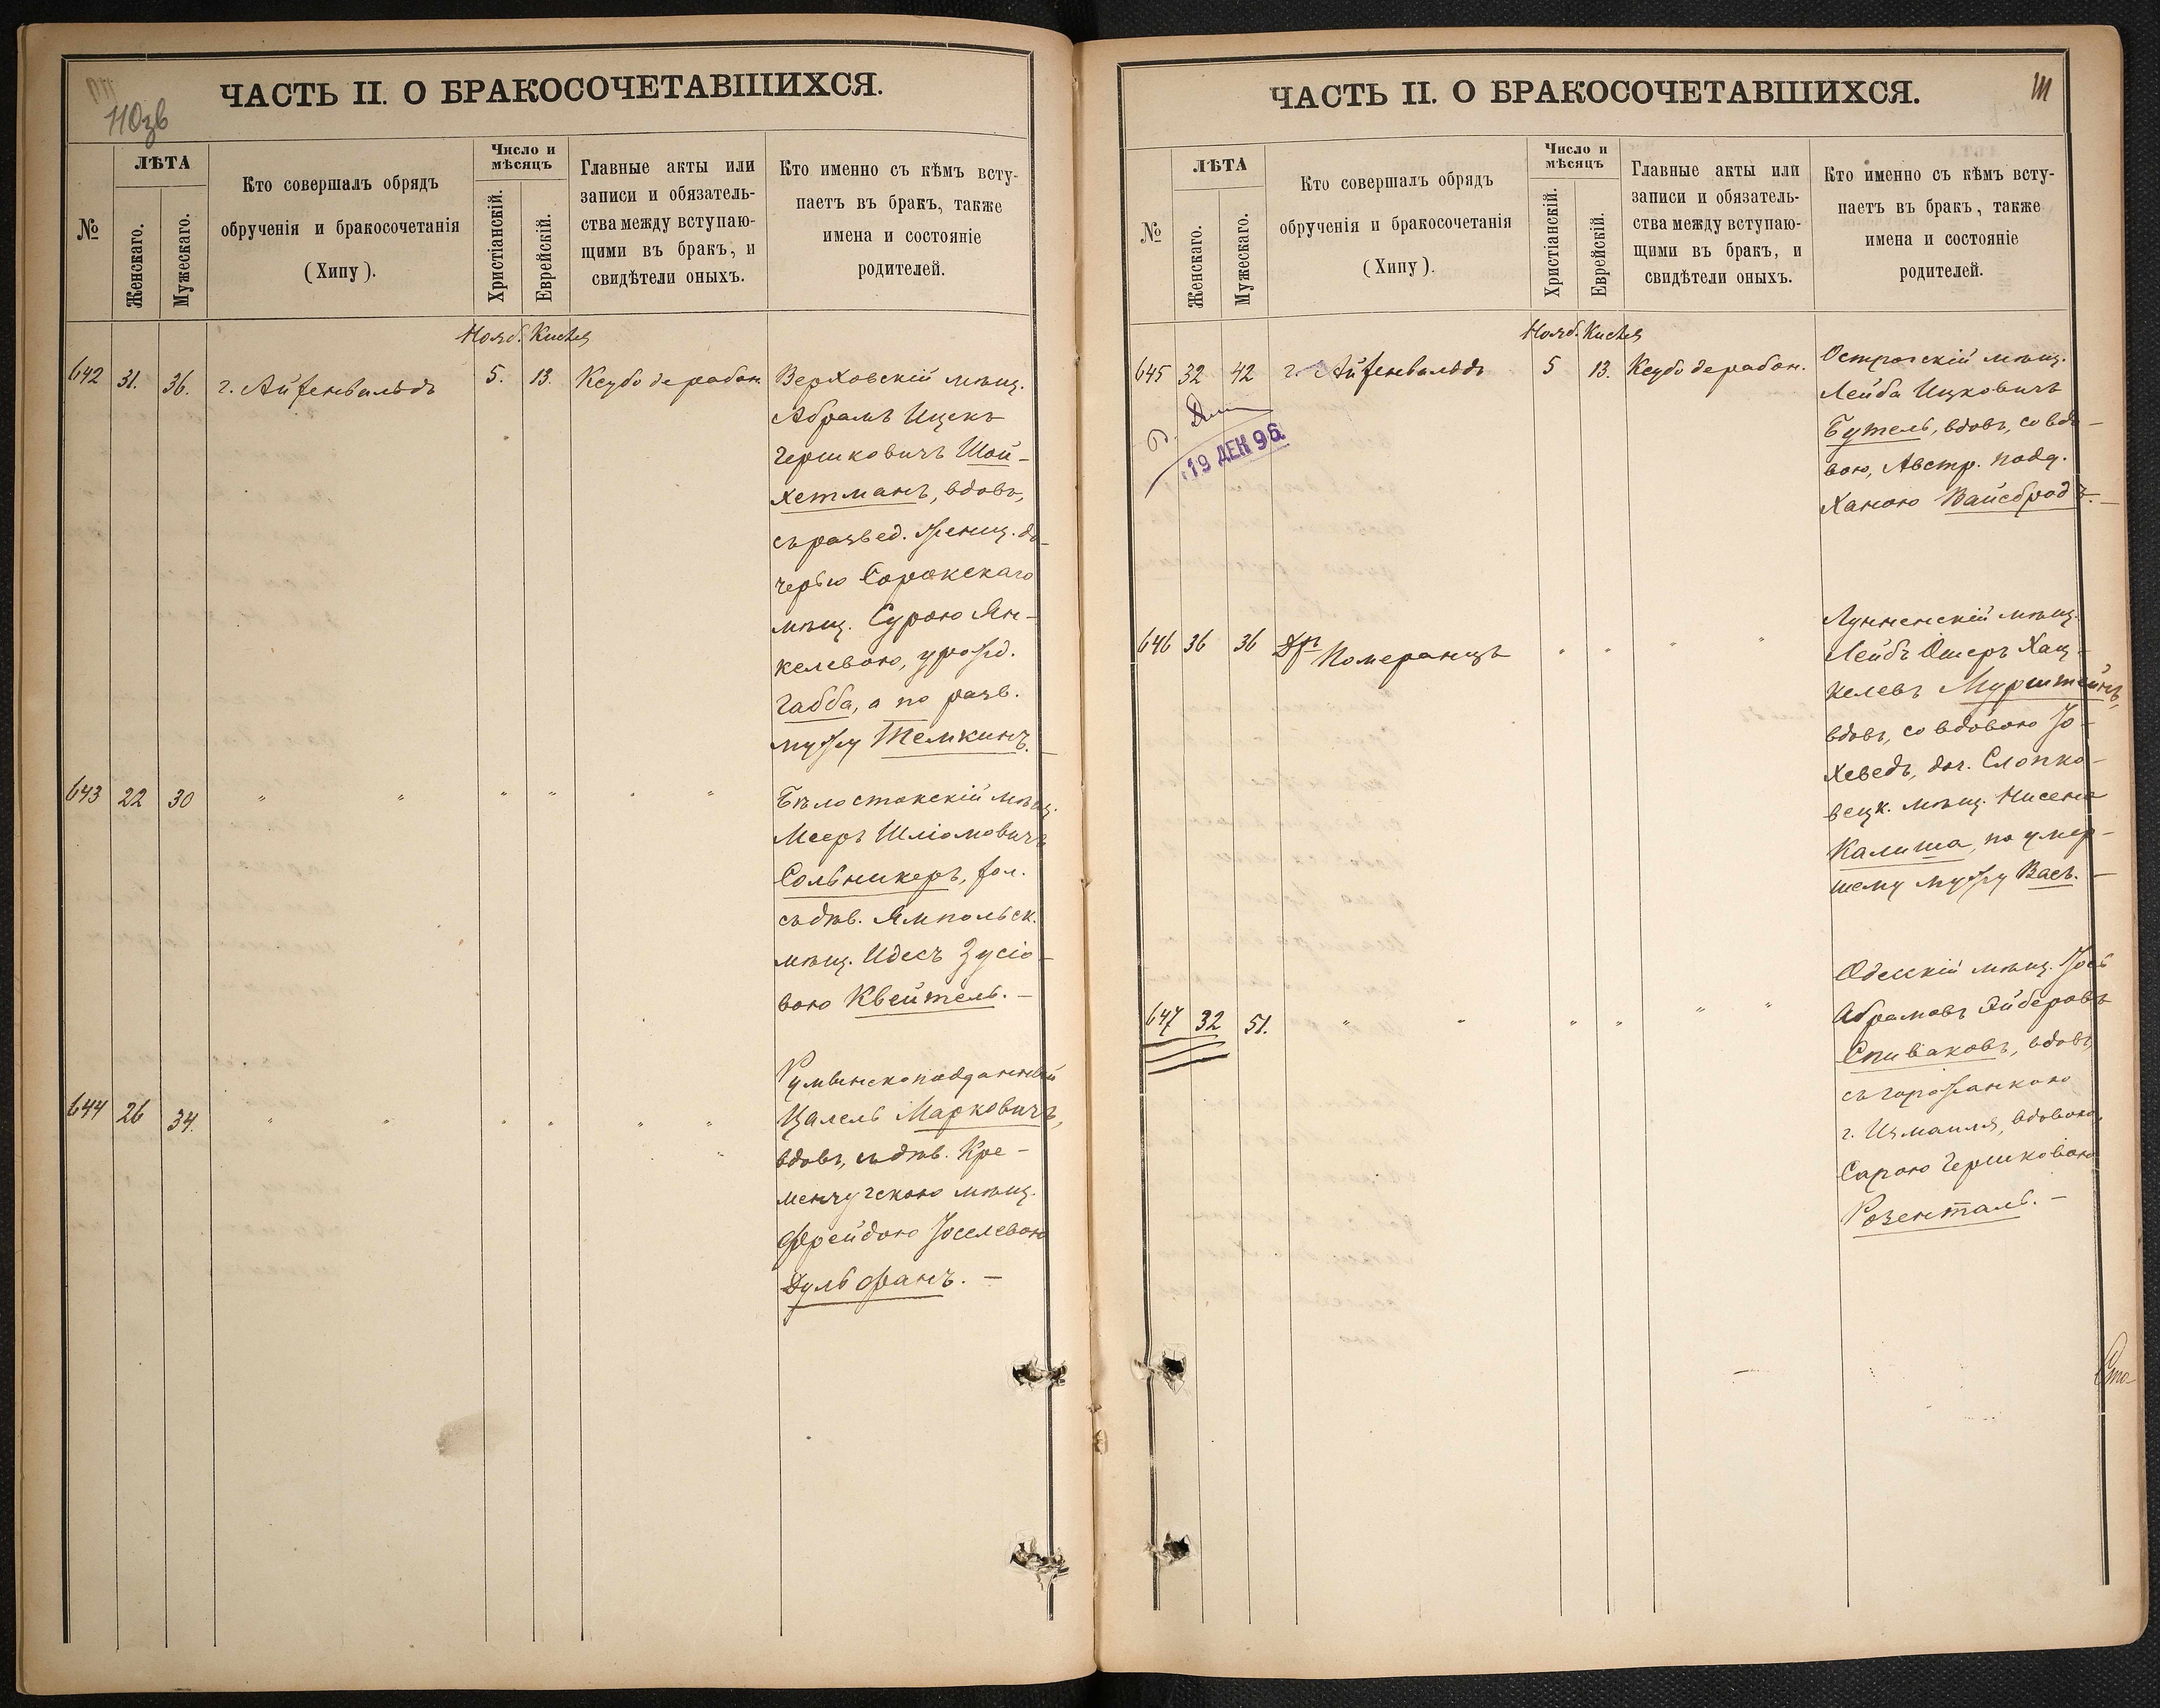 110зв
ЧАСТЬ II. О БРАКОСОЧЕТАВШИХСЯ.
№
ЛѢТА
Женскаго.
Мужескаго.
Кто совершалъ обрядъ
обрученія и бракосочетанія
(Хипу).
Число и
мѣсяцъ
Христіанскій.
Еврейскій.
Главные акты или
записи и обязатель-
ства между вступаю-
щими въ бракъ, и
свидѣтели оныхъ.
Кто именно съ кѣмъ всту-
паетъ въ бракъ, также
имена и состояніе
родителей.
Нояб. Кислев
642 31. 36. г. Айзенвальдъ 5. 13. Ксубо дерабон. Верховскій мѣщ.
Абрамъ Ицекъ
Гершковичъ Шой-
хетманъ, вдовъ,
съ развед. женщ. до-
черью Сорокскаго
мѣщ. Сурою Ян-
келевою, урожд.
Габба, а по разв.
мужу Темкинъ. —
643 22 30 " " " " " " Бѣлостокскій мѣщ.
Мееръ Шліомовичъ
Сольникеръ, хол.
съ дѣв. Ямпольск.
мѣщ. Идесъ Зусіо-
вою Квейтель. —
Румынскоподданный
644 26 34. " " " " " " Цалель Марковичъ,
вдовъ, съ дѣв. Кре-
менчугскою мѣщ.
Фрейдою Іоселевою
Дульфанъ. —
111
ЧАСТЬ II. О БРАКОСОЧЕТАВШИХСЯ.
№
ЛѢТА
Женскаго.
Мужескаго.
Кто совершалъ обрядъ
обрученія и бракосочетанія
(Хипу).
Число и
мѣсяцъ
Христіанскій.
Еврейскій.
Главные акты или
записи и обязатель-
ства между вступаю-
щими въ бракъ, и
свидѣтели оныхъ.
Кто именно съ кѣмъ всту-
паетъ въ бракъ, также
имена и состояніе
родителей.
Нояб. Кислев
645 32 42 г. Айзенвальдъ 5 13. Ксубо дерабон. Острогскій мѣщ.
Лейба Ицковичъ
19 ДЕК 96
Бутель, вдовъ, со вдо-
вою, Австр. подд.
Ханою Вайсбродъ. —
Лунненскій мѣщ.
646 36 36 Дръ Померанцъ " " " " Лейбъ Ошеръ Хац-
келевъ Мурштейнъ,
вдовъ, со вдовою Іо-
хеведъ, доч. Слопко-
вецк. мѣщ. Нисена
Калиша, по умер-
шему мужу Васъ. —
Одесскій мѣщ. Іось
647 32 51. " " " " " " Абрамовъ Эйберовъ
Спиваковъ, вдовъ,
съ горожанкою
г. Измаиля, вдовою,
Сарою Гершковою
Розенталь. —
Сто